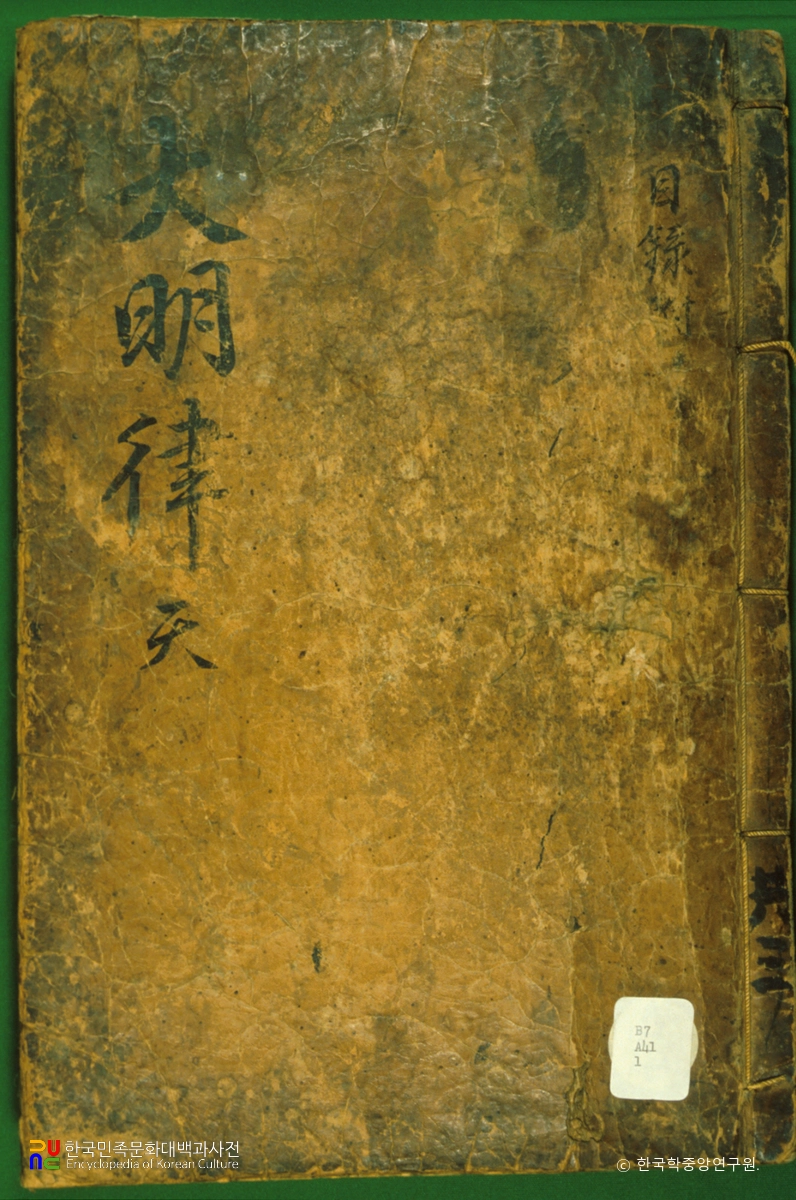 大明律 天
目錄附
共三
B7
A41
1
한국민족문화대백과사전
Encyclopedia of Korean Culture
© 한국학중앙연구원.